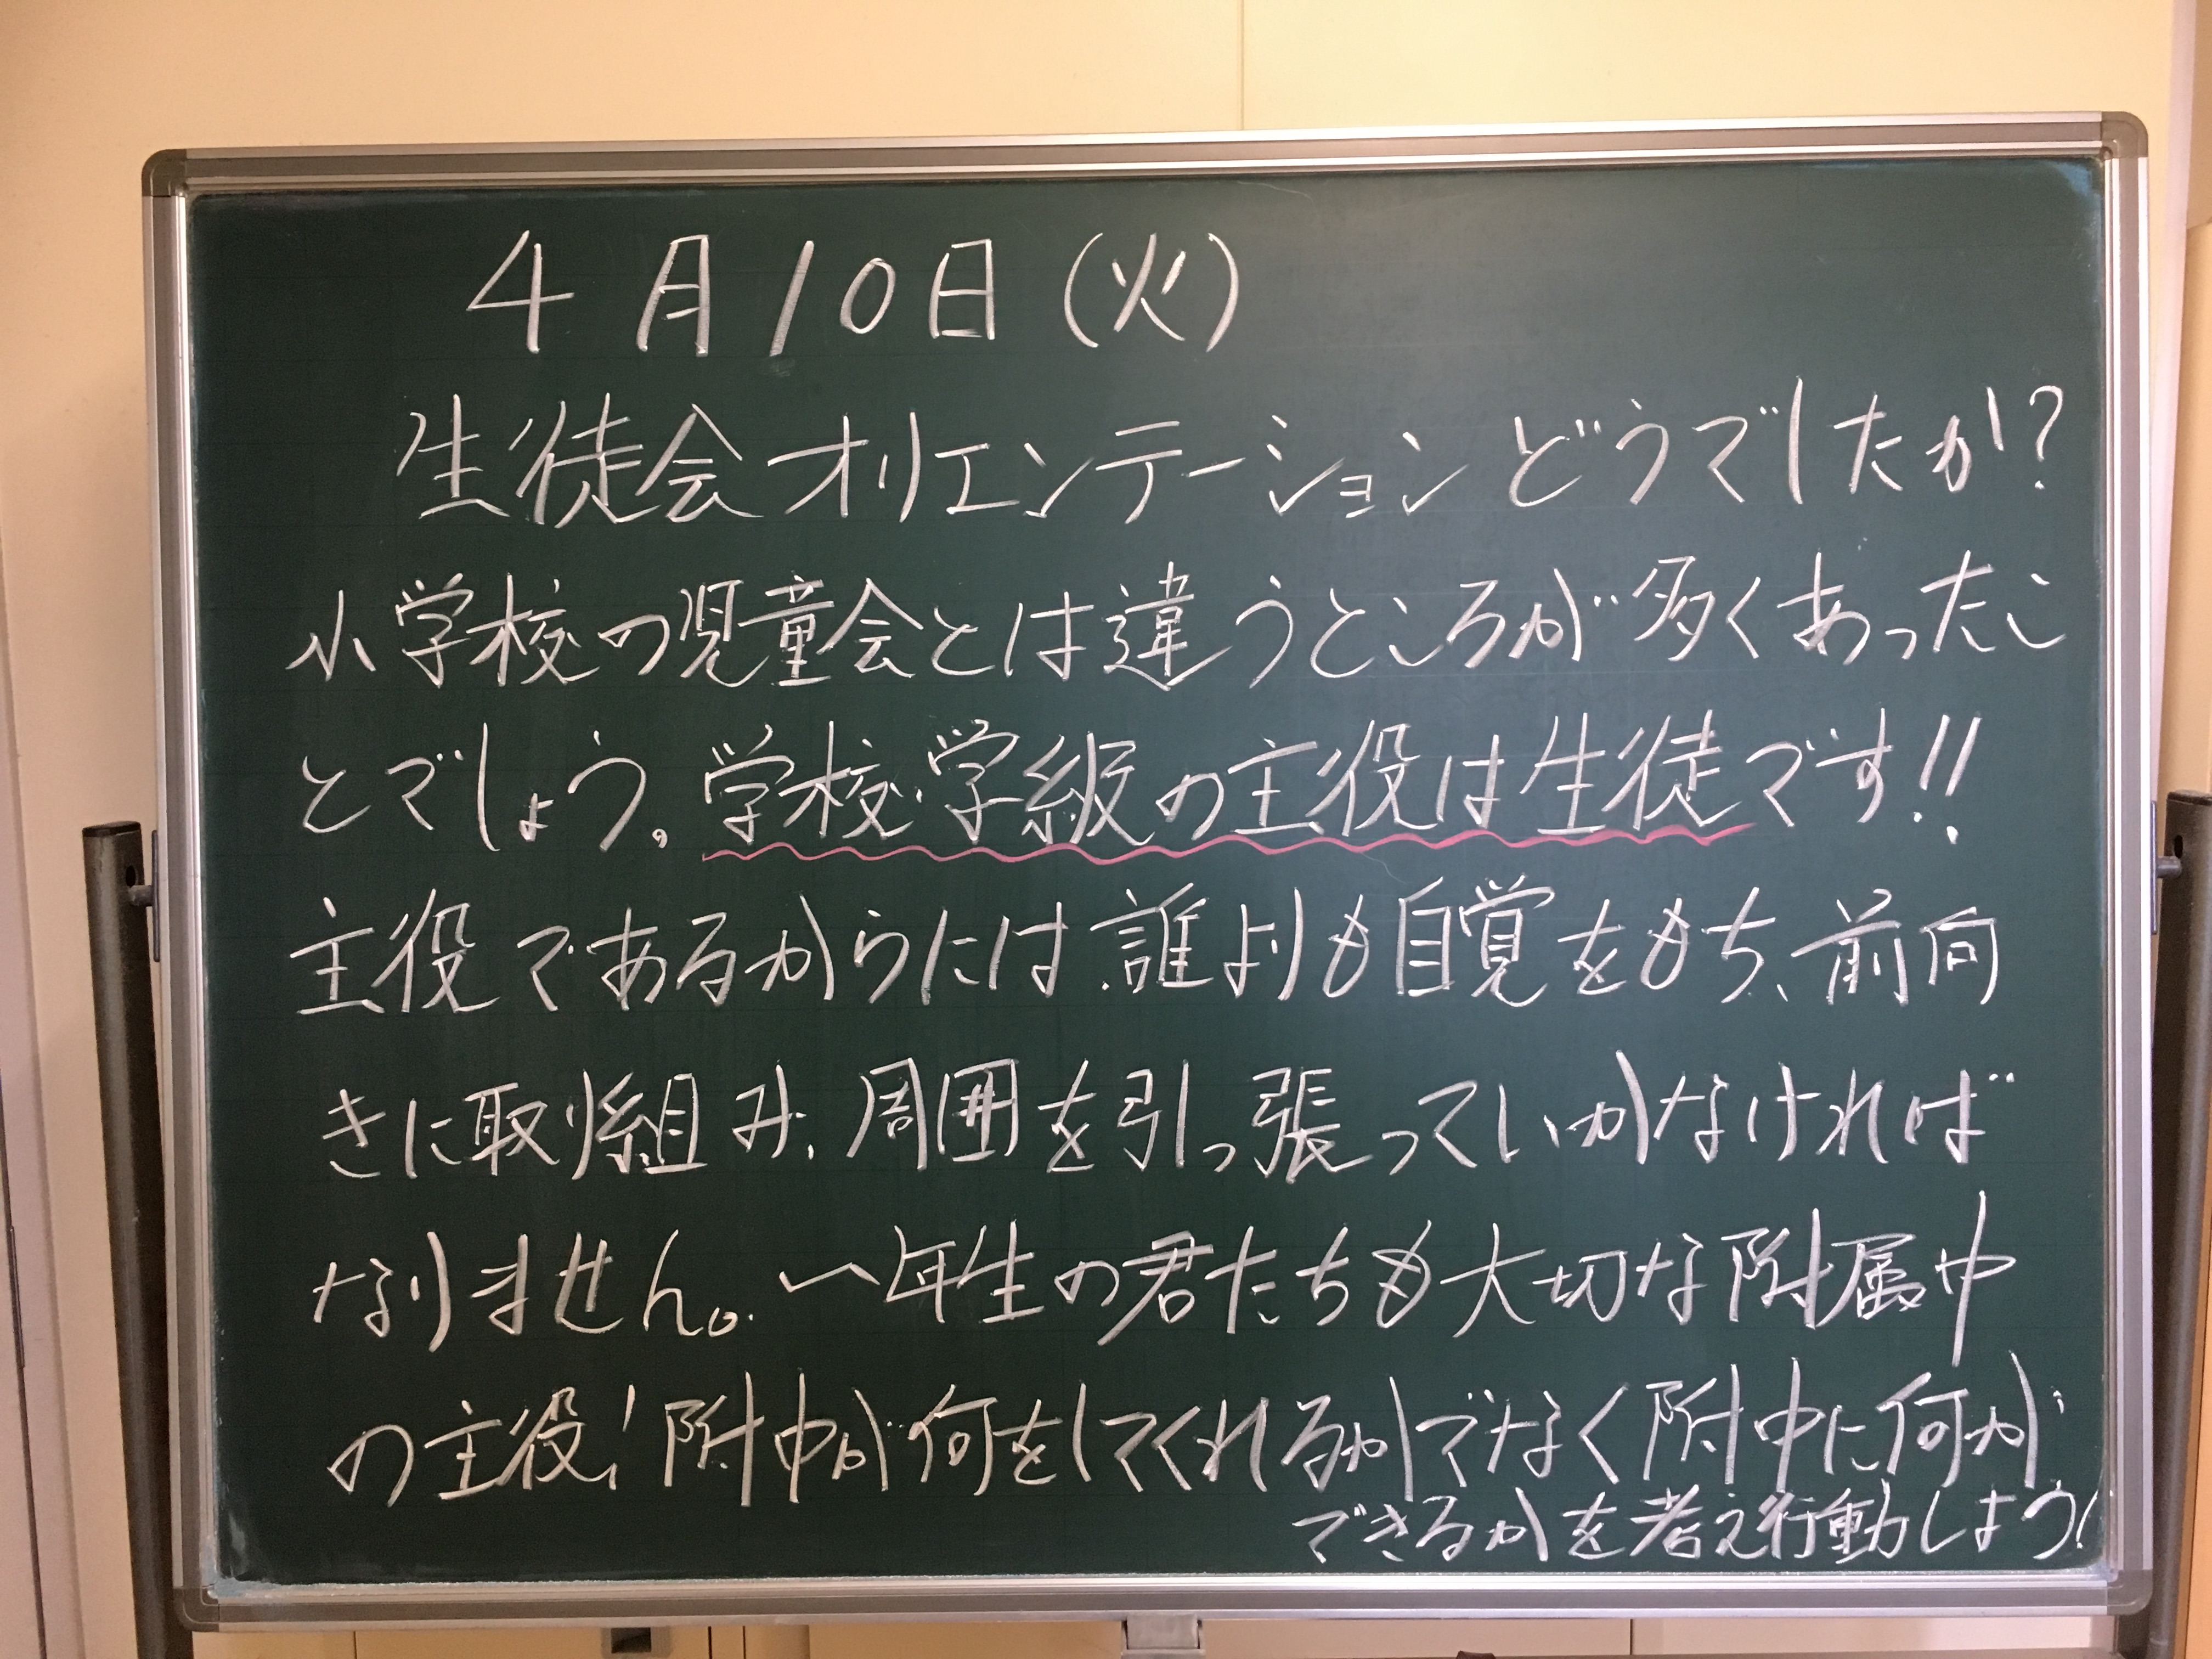 4月10日(火)
生徒会オリエンテーションどうでしたか?
小学校の児童会とは違うところが多くあったこ
とでしょう。学校・学級の主役は生徒です!!
主役であるからには、誰よりも自覚をもち、前向
きに取り組み、周囲を引っ張っていかなければ
なりません。一年生の君たちも大切な附属中
の主役!附中が何をしてくれるかでなく附中に何が
できるかを考え行動しよう!